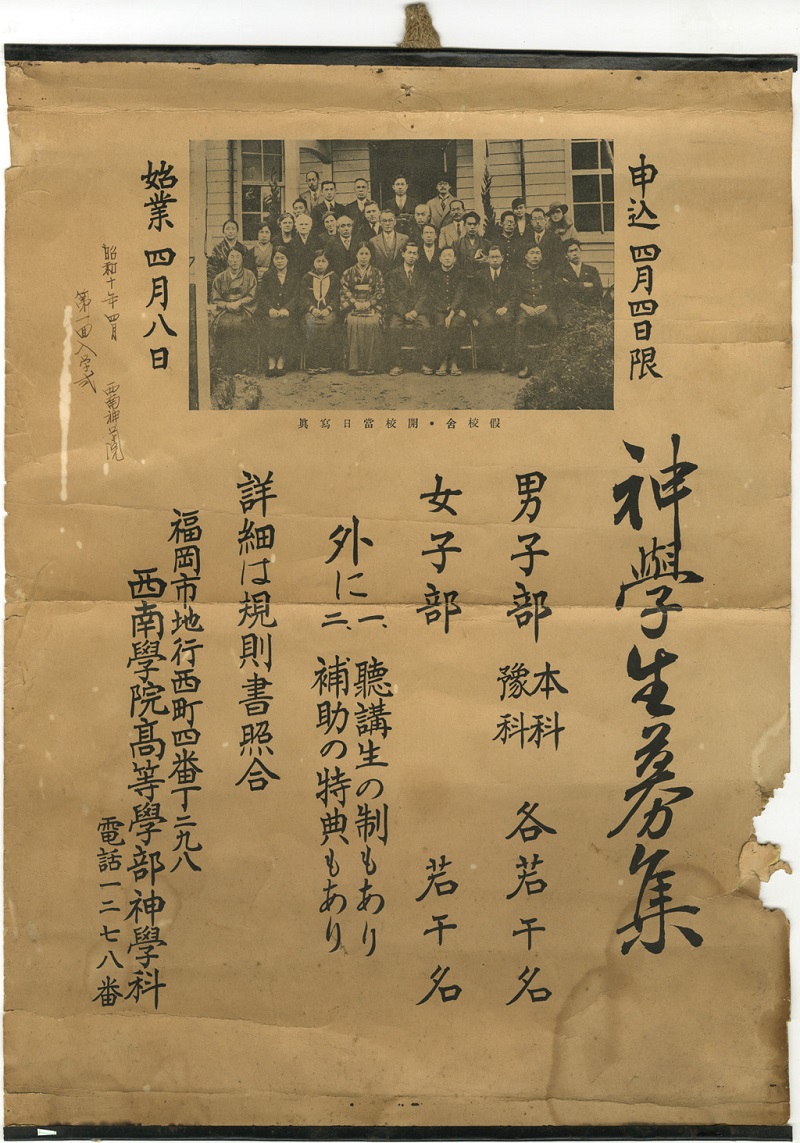 申込 四月四日限
始業 四月八日
假校舎・開校當日寫眞
昭和十年四月
第一回入学式
西南神学院
神學生募集
男子部 本科 豫科 各若干名
女子部 若干名
外に
一、聽講生の制もあり
二、補助の特典もあり
詳細は規則書照合
福岡市地行西町四番丁二九八
西南學院高等學部神學科
電話一二七八番